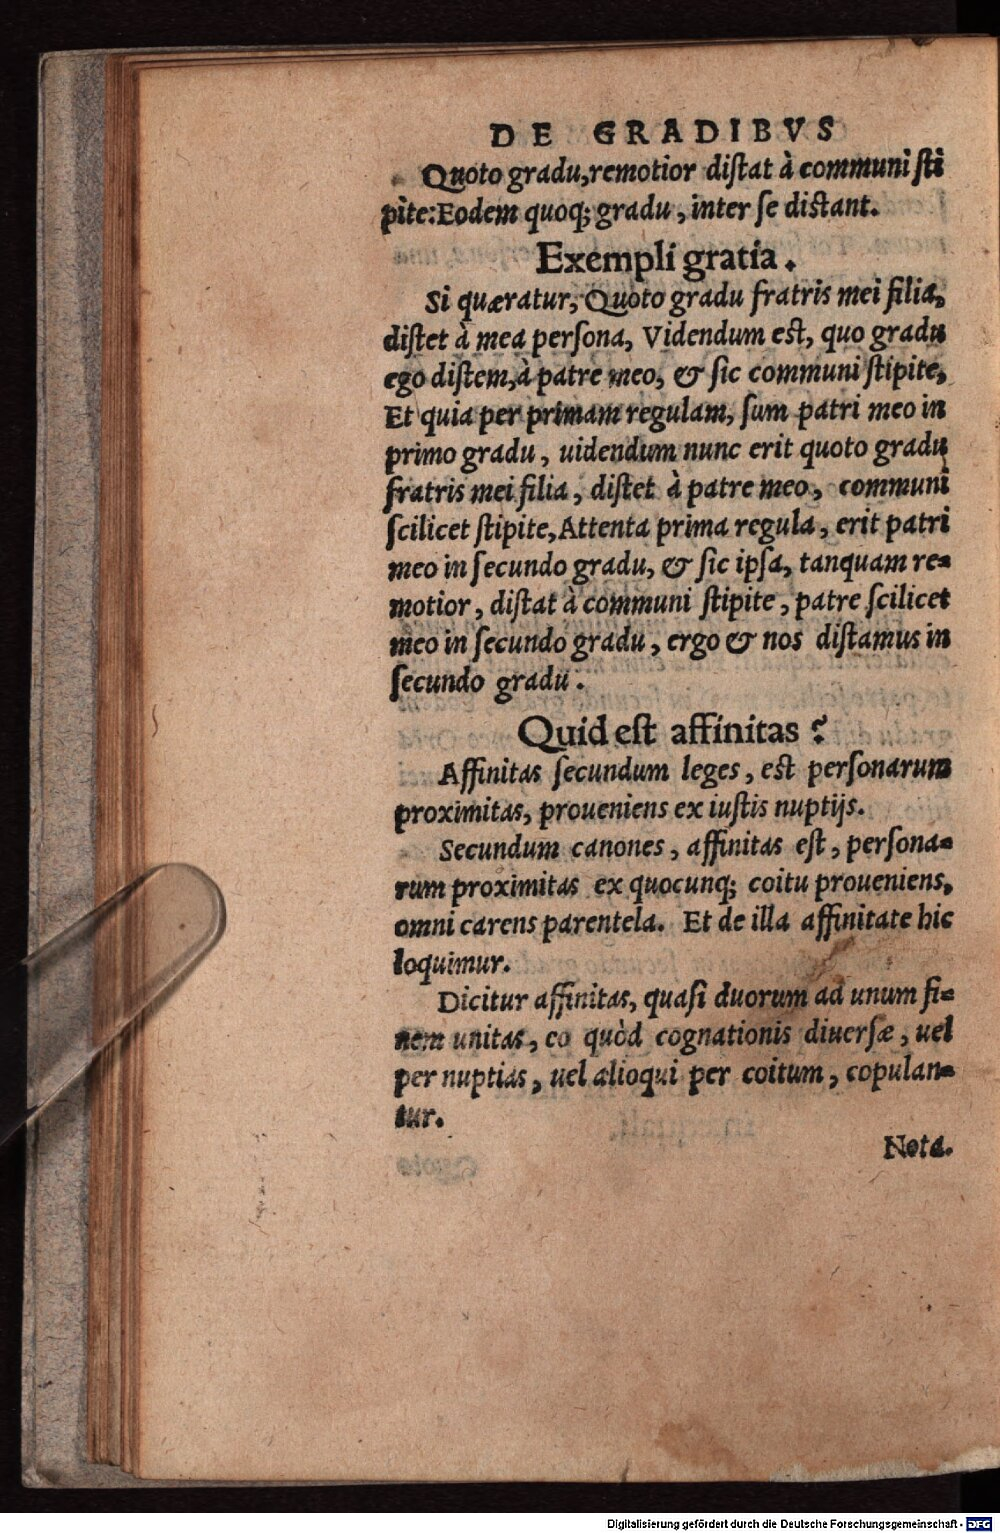 DE GRADIBVS
Quoto gradu, remotior distat à communi sti
pite: Eodem quoq; gradu, inter se distant.
Exempli gratia.
Si quæratur, Quoto gradu fratris mei filia,
distet à mea persona, Videndum est, quo gradu
ego distem, à patre meo, & sic communi stipite,
Et quia per primam regulam, sum patri meo in
primo gradu, uidendum nunc erit quoto gradu
fratris mei filia, distet à patre meo, communi
scilicet stipite, Attenta prima regula, erit patri
meo in secundo gradu, & sic ipsa, tanquam re-
motior, distat à communi stipite, patre scilicet
meo in secundo gradu, ergo & nos distamus in
secundo gradu.
Quid est affinitas?
Affinitas secundum leges, est personarum
proximitas, proueniens ex iustis nuptijs.
Secundum canones, affinitas est, persona-
rum proximitas ex quocunq; coitu proueniens,
omni carens parentela. Et de illa affinitate hic
loquimur.
Dicitur affinitas, quasi duorum ad unum fi-
nem unitas, eo quòd cognationis diuersæ, uel
per nuptias, uel alioqui per coitum, copulan-
tur.
Nota.
Digitalisierung gefördert durch die Deutsche Forschungsgemeinschaft - DFG